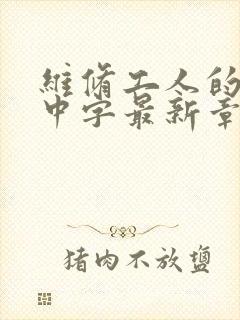 維修工人的
中字最新章
猪肉不放鹽